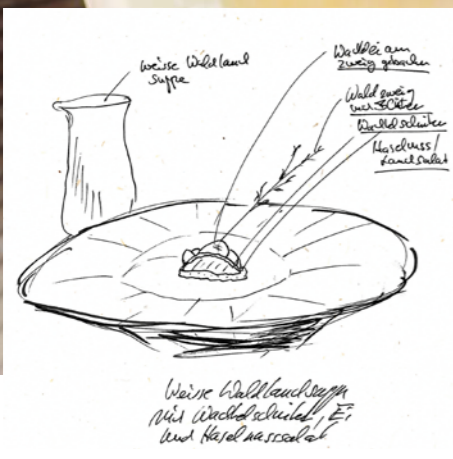 weisse Waldlauch
suppe
Wachtelei am
zweig gebacken
Waldzweig
Wachtelschinken
Haselnuss/
Lauchsalat
Weisse Waldlauchsuppe
mit Wachtelschinken, Ei
und Haselnusssalat